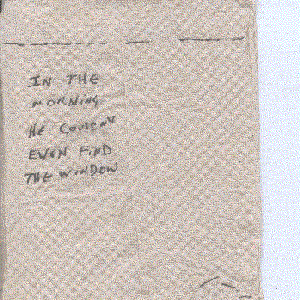 IN THE
MORNING
HE COULDN'T
EVEN FIND
THE WINDOW